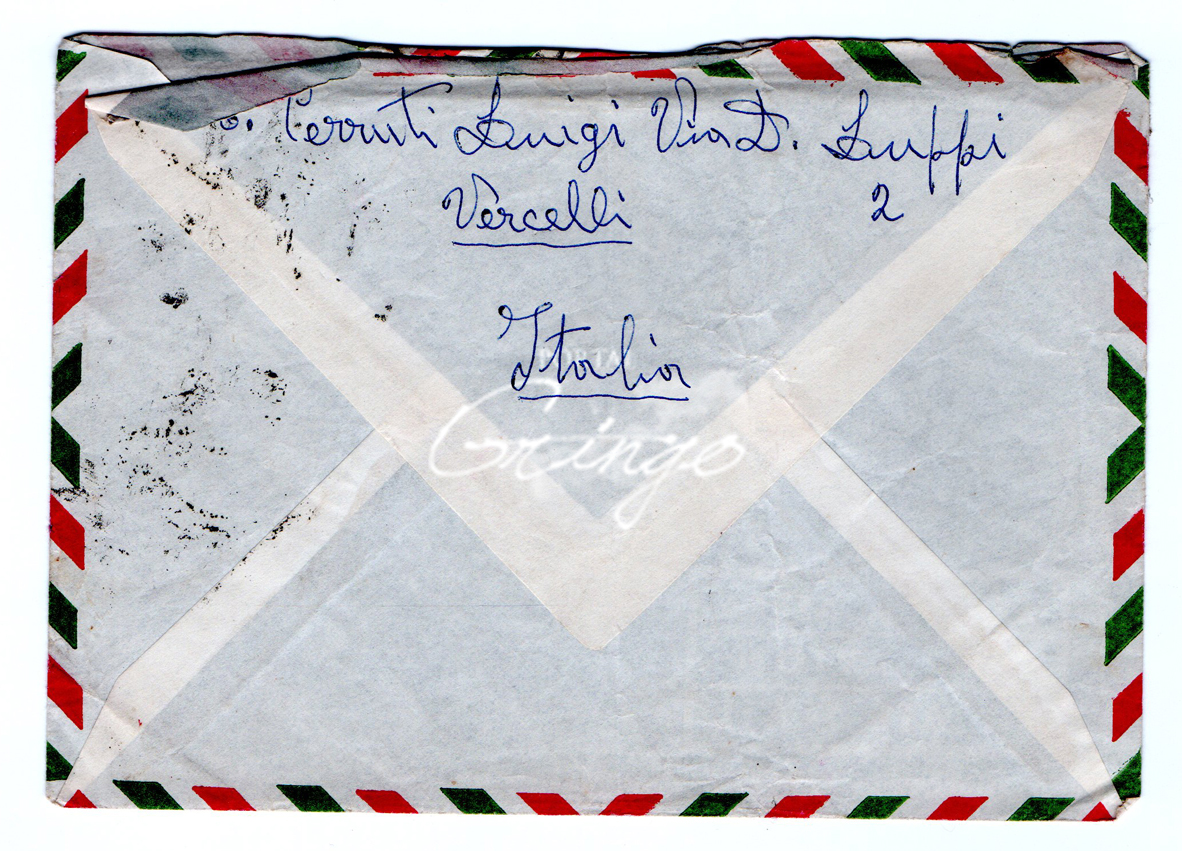 o. Cerruti Luigi Via D. Luppi
2
Vercelli
Italia
PORTAL
Gringo